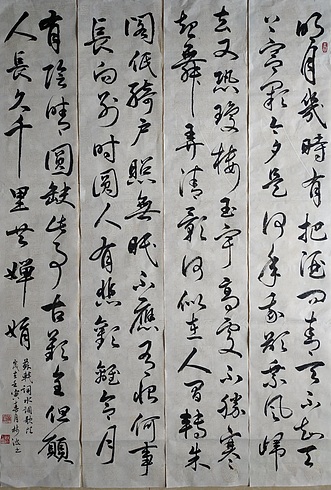 明月幾時有把酒問青天不知天
上宮闕今夕是何年我欲乘風歸
去又恐瓊樓玉宇高處不勝寒
起舞弄清影何似在人間轉朱
閣低綺戶照無眠不應有恨何事
長向別時圓人有悲歡離合月
有陰晴圓缺此事古難全但願
人長久千里共嬋娟
蘇軾詞水調歌頭